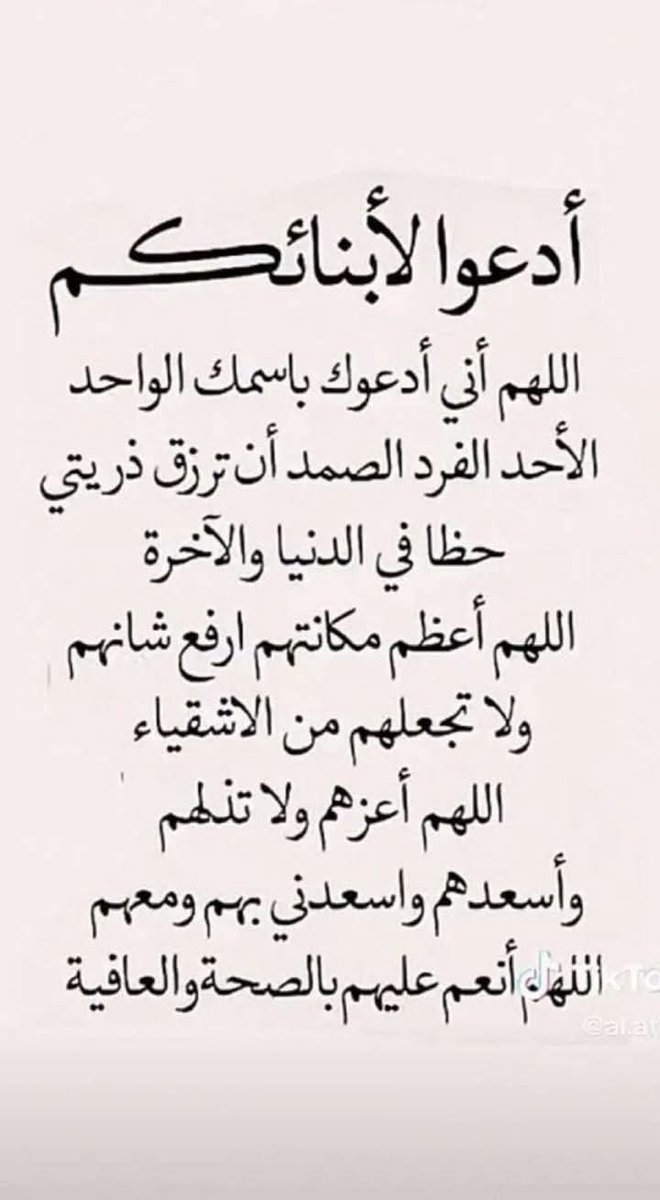 أدعوا لأبنائكم
اللهم أني أدعوك باسمك الواحد
الأحد الفرد الصمد أن ترزق ذريتي
حظا في الدنيا والآخرة
اللهم أعظم مكانتهم ارفع شانهم
ولا تجعلهم من الاشقياء
اللهم أعزهم ولا تذلهم
وأسعدهم واسعدني بهم ومعهم
اللهم أنعم عليهم بالصحة والعافية